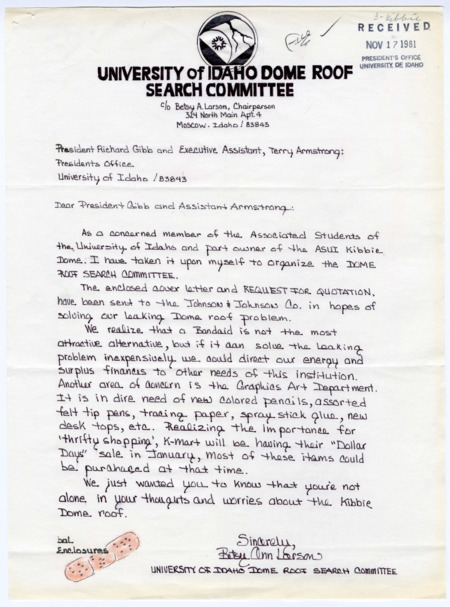 S. Kibbie
RECEIVED
NOV 17 1981
PRESIDENT'S OFFICE
UNIVERSITY OF IDAHO
File
UNIVERSITY of IDAHO DOME ROOF
SEARCH COMMITTEE
c/o Betsy A. Larson, Chairperson
324 North Main Apt. 4
Moscow, Idaho / 83843
President Richard Gibb and Executive Assistant, Terry Armstrong:
Presidents Office
University of Idaho / 83843
Dear President Gibb and Assistant Armstrong:
As a concerned member of the Associated Students of
the University of Idaho and part owner of the ASUI Kibbie
Dome. I have taken it upon myself to organize the DOME
ROOF SEARCH COMMITTEE.
The enclosed cover letter and REQUEST FOR QUOTATION,
have been sent to the Johnson & Johnson Co. in hopes of
solving our leaking Dome roof problem.
We realize that a Bandaid is not the most
attractive alternative, but if it can solve the leaking
problem inexpensively we could direct our energy and
surplus finances to other needs of this institution.
Another area of concern is the Graphics Art Department.
It is in dire need of new colored pencils, assorted
felt tip pens, tracing paper, spray stick glue, new
desk tops, etc. Realizing the importance for
'thrifty shopping', K-mart will be having their "Dollar
Days" sale in January, most of these items could
be purchased at that time.
We just wanted you to know that you're not
alone in your thoughts and worries about the Kibbie
Dome roof.
bal
Enclosures
Sincerely,
Betsy Ann Larson
UNIVERSITY OF IDAHO DOME ROOF SEARCH COMMITTEE